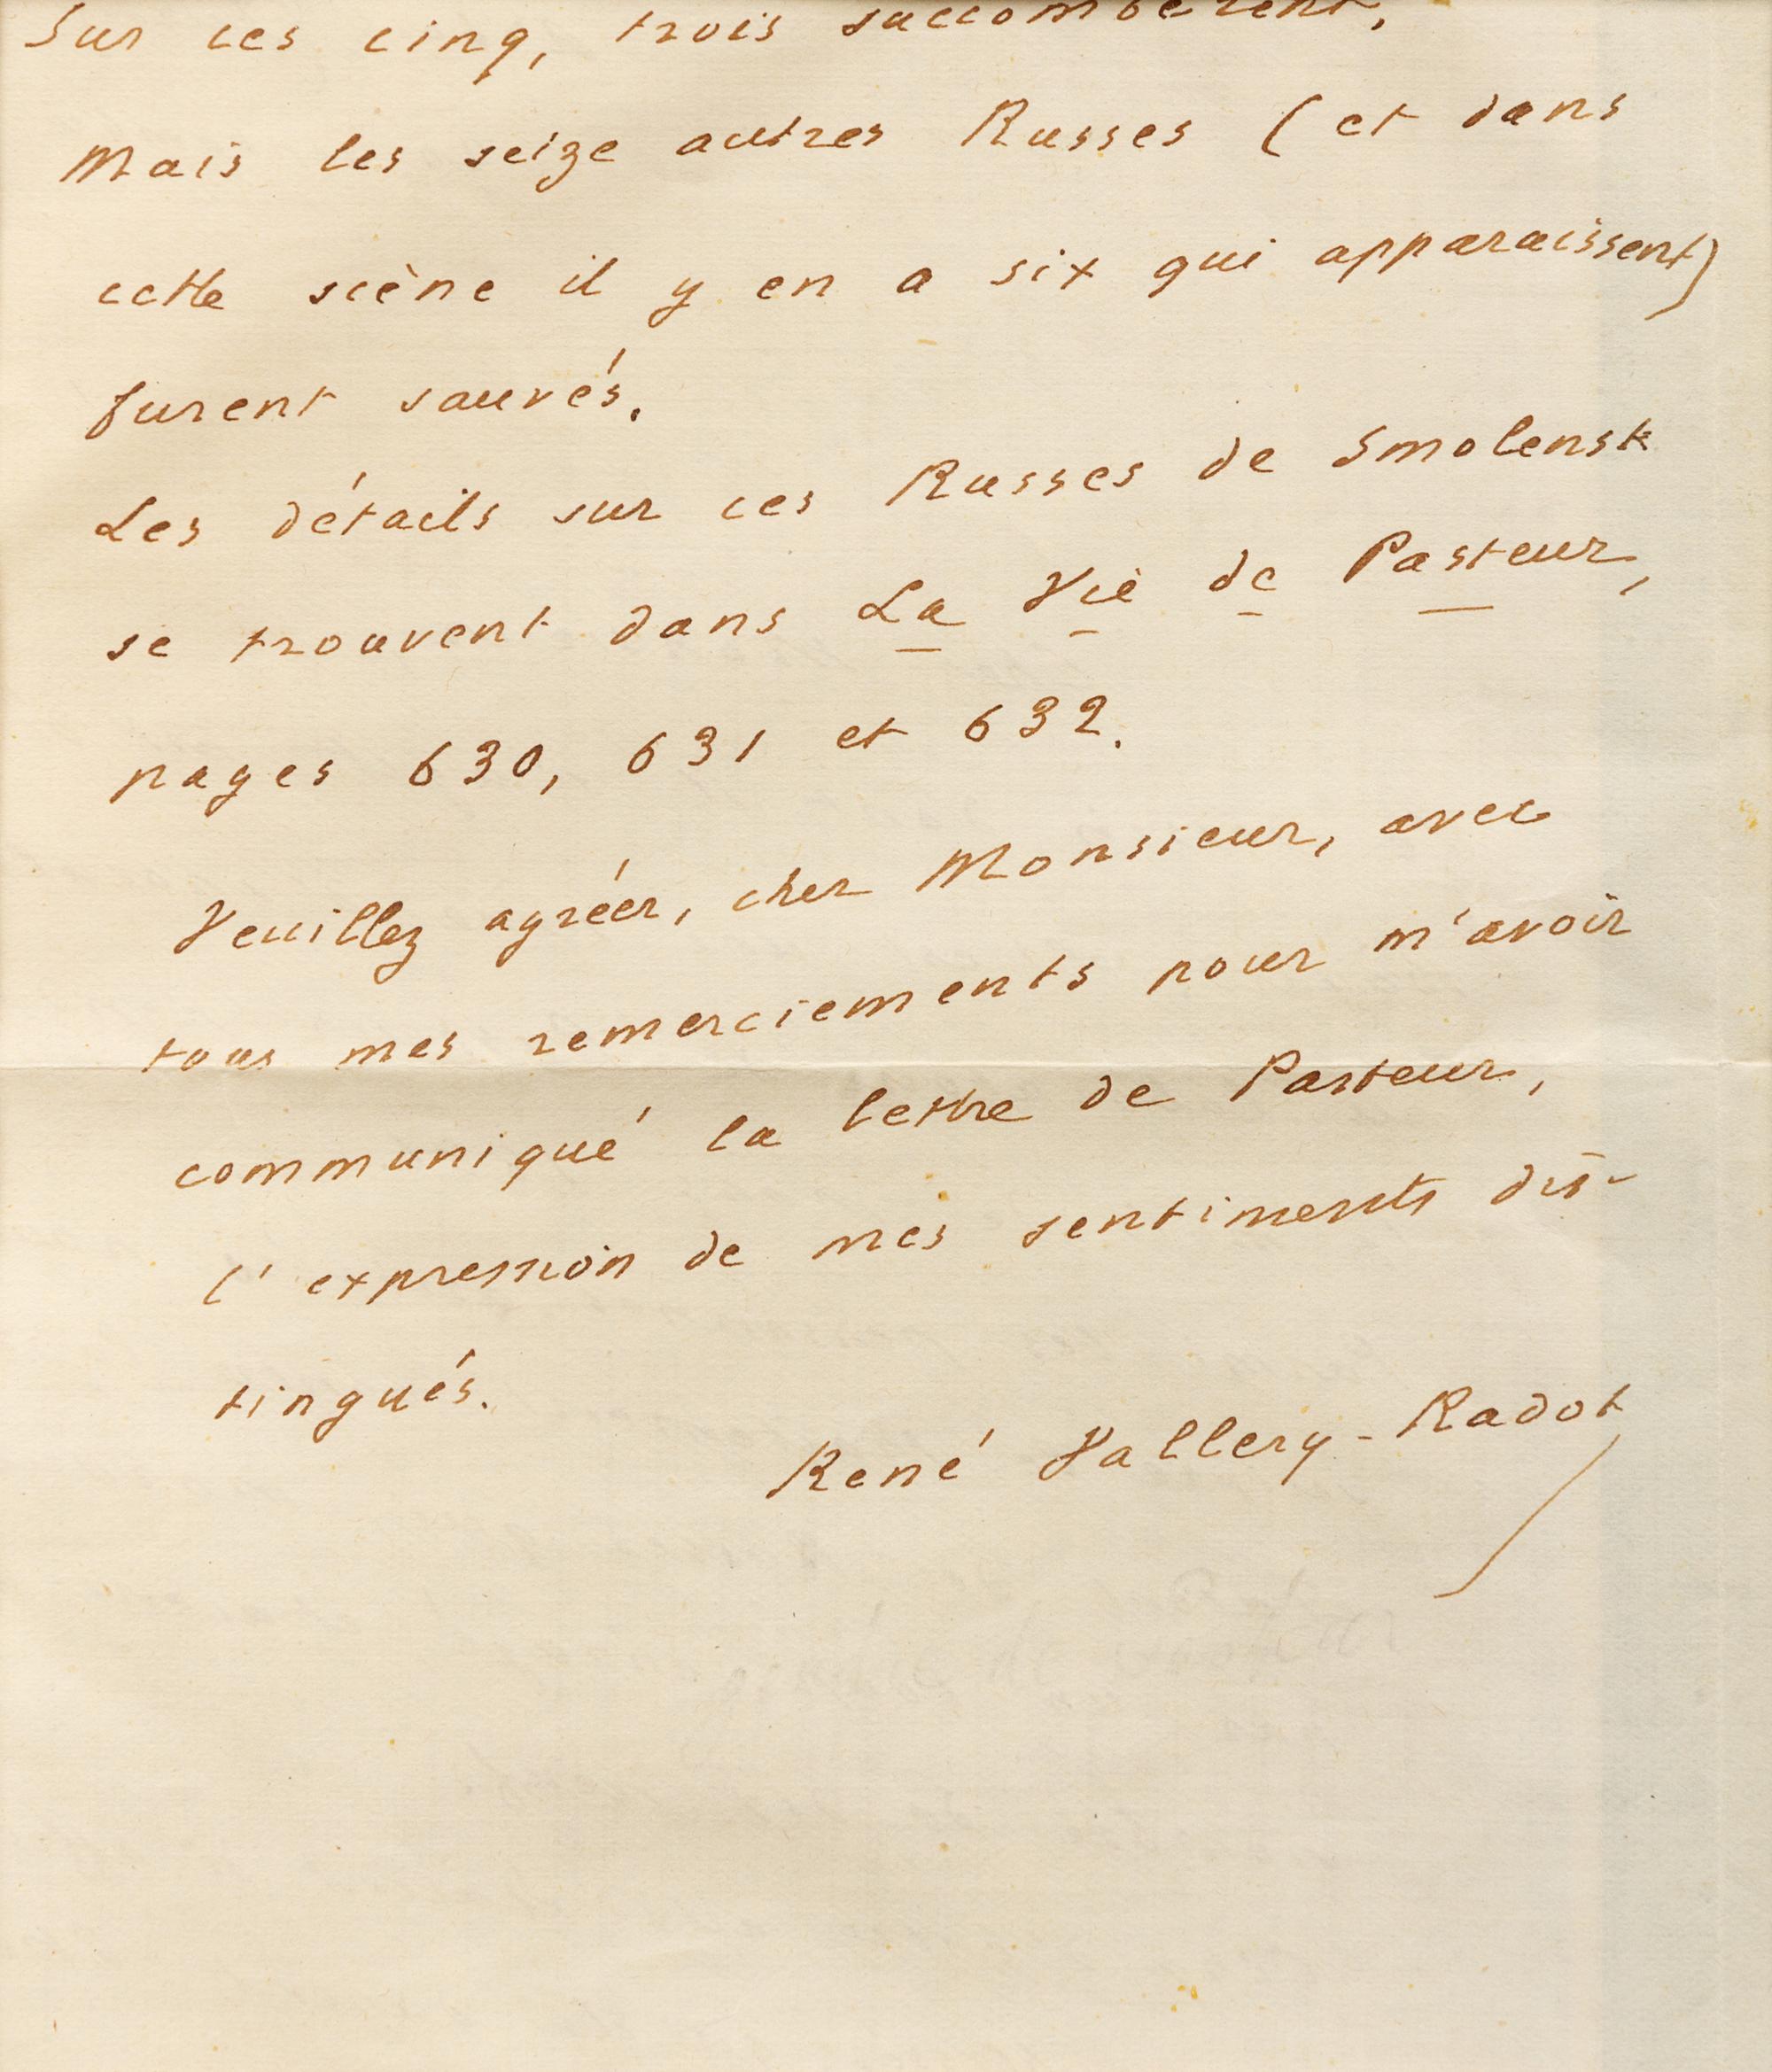 Sur ces cinq, trois succombèrent,
Mais les seize autres Russes (et dans
cette scène il y en a six qui apparaissent)
furent sauvés.
Les détails sur ces Russes de Smolensk
se trouvent dans La Vie de Pasteur,
pages 630, 631 et 632.
Veuillez agréer, cher Monsieur, avec
tous mes remerciements pour m'avoir
communiqué la lettre de Pasteur,
l'expression de mes sentiments dis-
tingués.
René Vallery-Radot